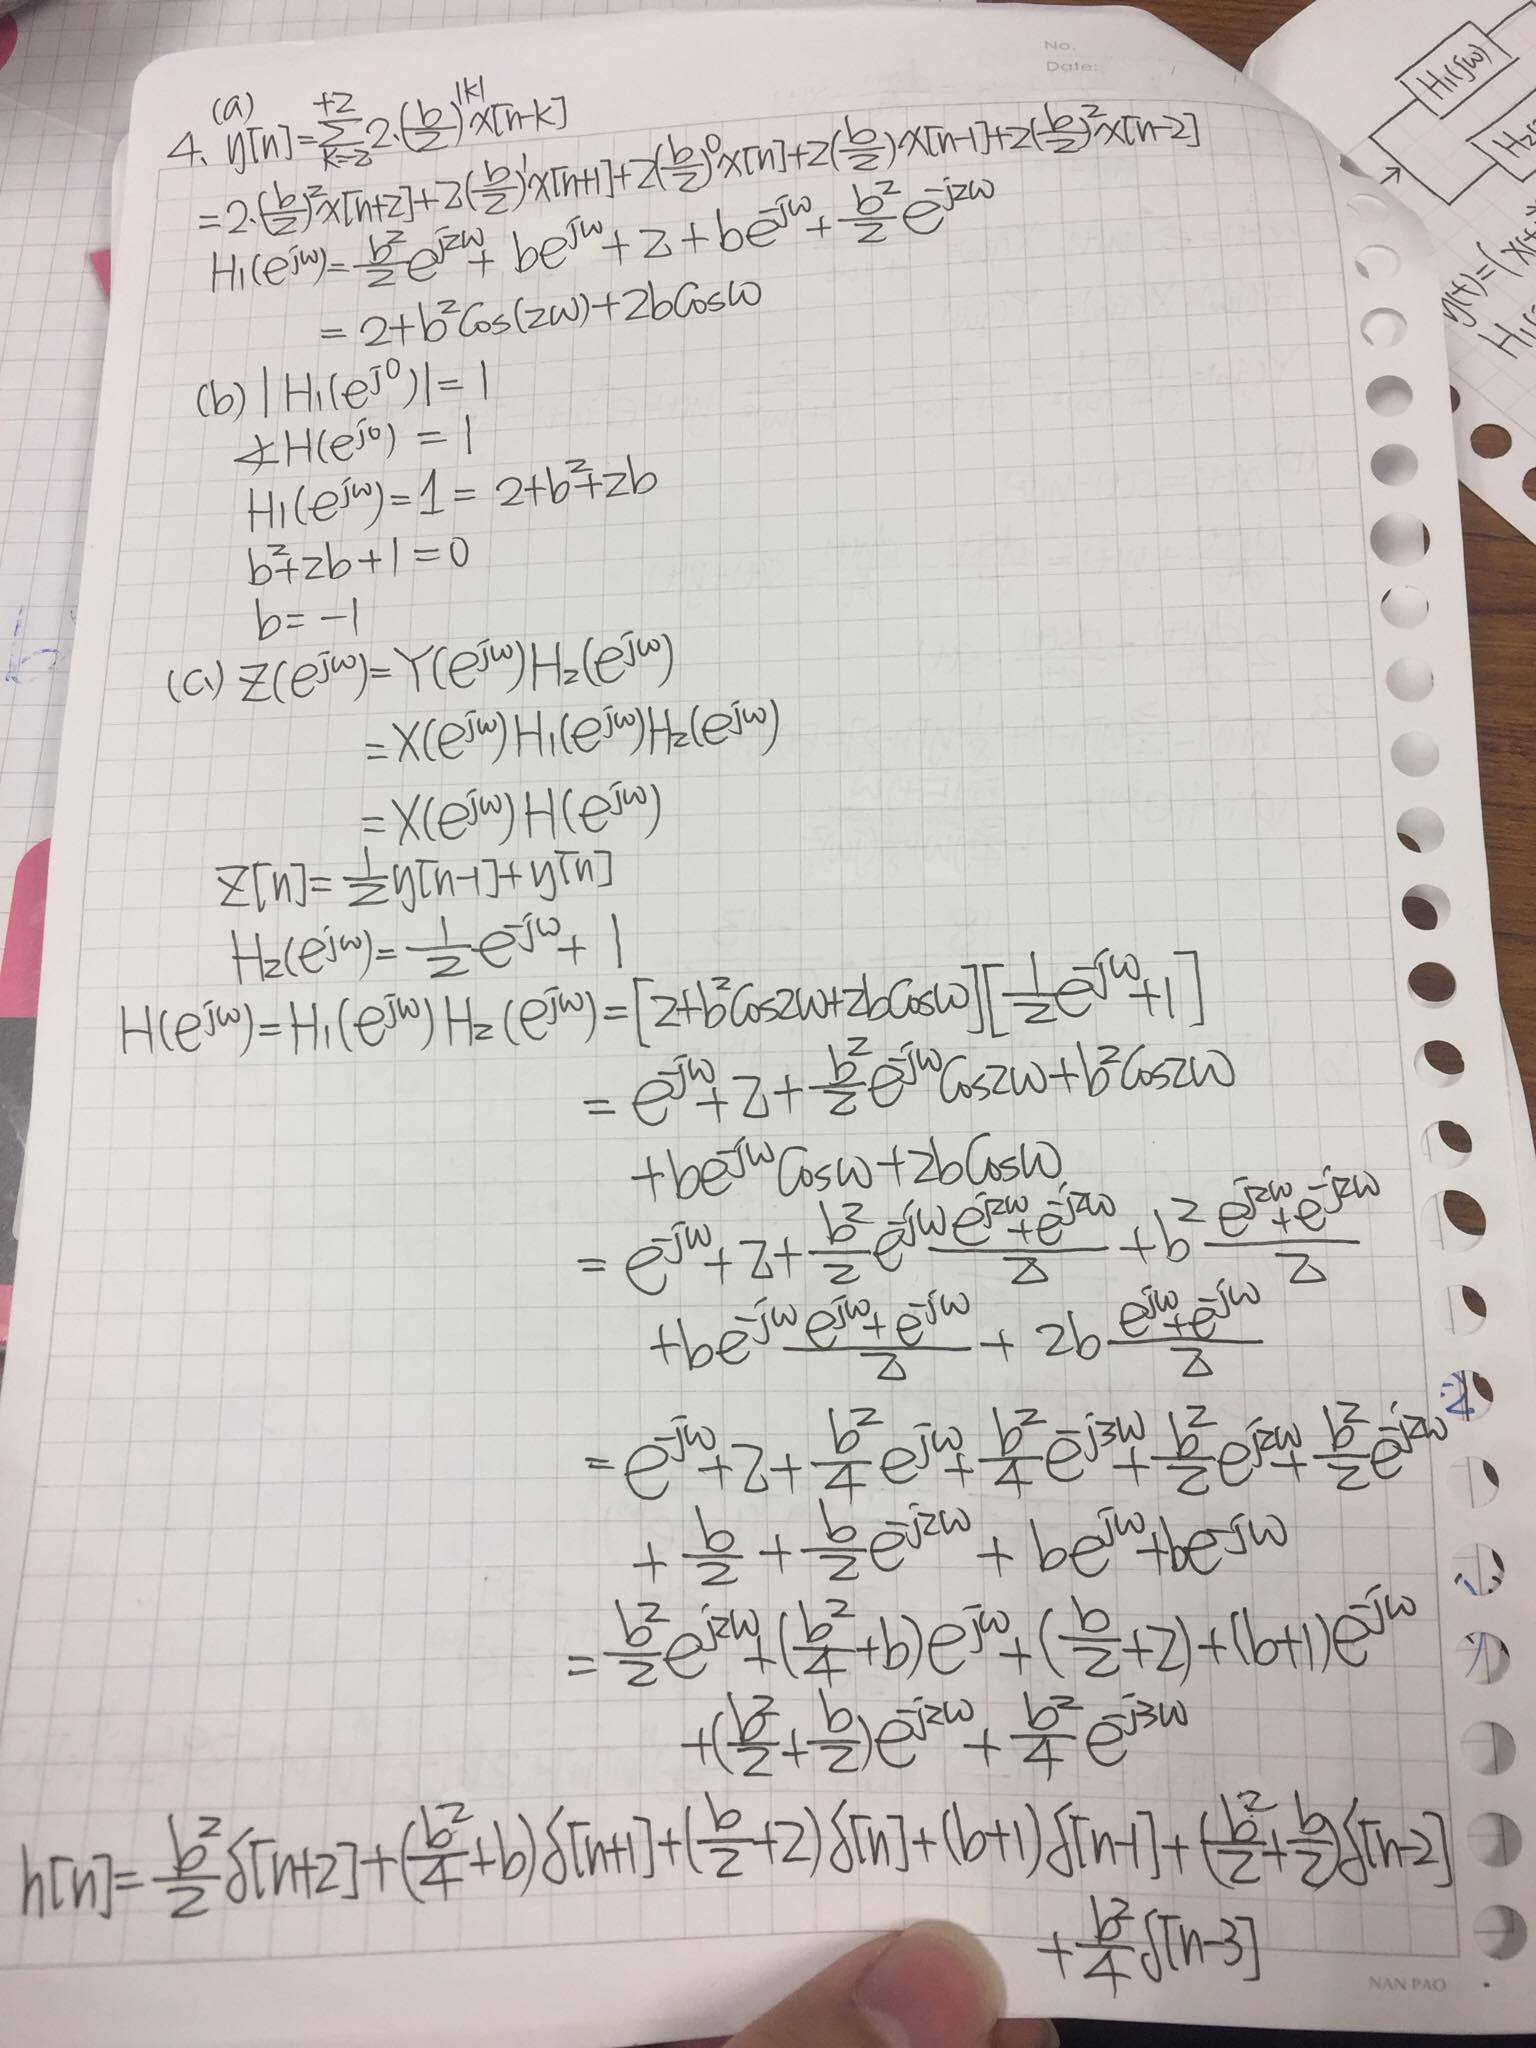 No.
Date:
(a)
4. y[n]=∑_{k=-2}^{+2} 2·(b/2)^{|k|} x[n-k]
=2·(b/2)^2 x[n+2]+2(b/2)^1 x[n+1]+2(b/2)^0 x[n]+2(b/2)·x[n-1]+2(b/2)^2 x[n-2]
H1(e^{jω})=b^2/2 e^{j2ω}+be^{jω}+2+be^{-jω}+b^2/2 e^{-j2ω}
=2+b^2 Cos(2ω)+2bCosω
(b) |H1(e^{j0})|=1
∡H(e^{j0})=1
H1(e^{jω})=1=2+b^2+2b
b^2+2b+1=0
b=-1
(c) Z(e^{jω})=Y(e^{jω})H2(e^{jω})
=X(e^{jω})H1(e^{jω})H2(e^{jω})
=X(e^{jω})H(e^{jω})
Z[n]=1/2 y[n-1]+y[n]
H2(e^{jω})=1/2 e^{-jω}+1
H(e^{jω})=H1(e^{jω})H2(e^{jω})=[2+b^2 Cos2ω+2bCosω][1/2 e^{-jω}+1]
=e^{-jω}+2+b^2/2 e^{-jω}Cos2ω+b^2 Cos2ω
+be^{-jω}Cosω+2bCosω
=e^{-jω}+2+b^2/2 e^{-jω} (e^{j2ω}+e^{-j2ω})/2+b^2 (e^{j2ω}+e^{-j2ω})/2
+be^{-jω} (e^{jω}+e^{-jω})/2+2b (e^{jω}+e^{-jω})/2
=e^{-jω}+2+b^2/4 e^{jω}+b^2/4 e^{-j3ω}+b^2/2 e^{j2ω}+b^2/2 e^{-j2ω}
+b/2+b/2 e^{-j2ω}+be^{jω}+be^{-jω}
=b^2/2 e^{j2ω}+(b^2/4+b)e^{jω}+(b/2+2)+(b+1)e^{-jω}
+(b^2/2+b/2)e^{-j2ω}+b^2/4 e^{-j3ω}
h[n]=b^2/2 δ[n+2]+(b^2/4+b)δ[n+1]+(b/2+2)δ[n]+(b+1)δ[n-1]+(b^2/2+b/2)δ[n-2]
+b^2/4 δ[n-3]
NAN PAO
H1(jω)